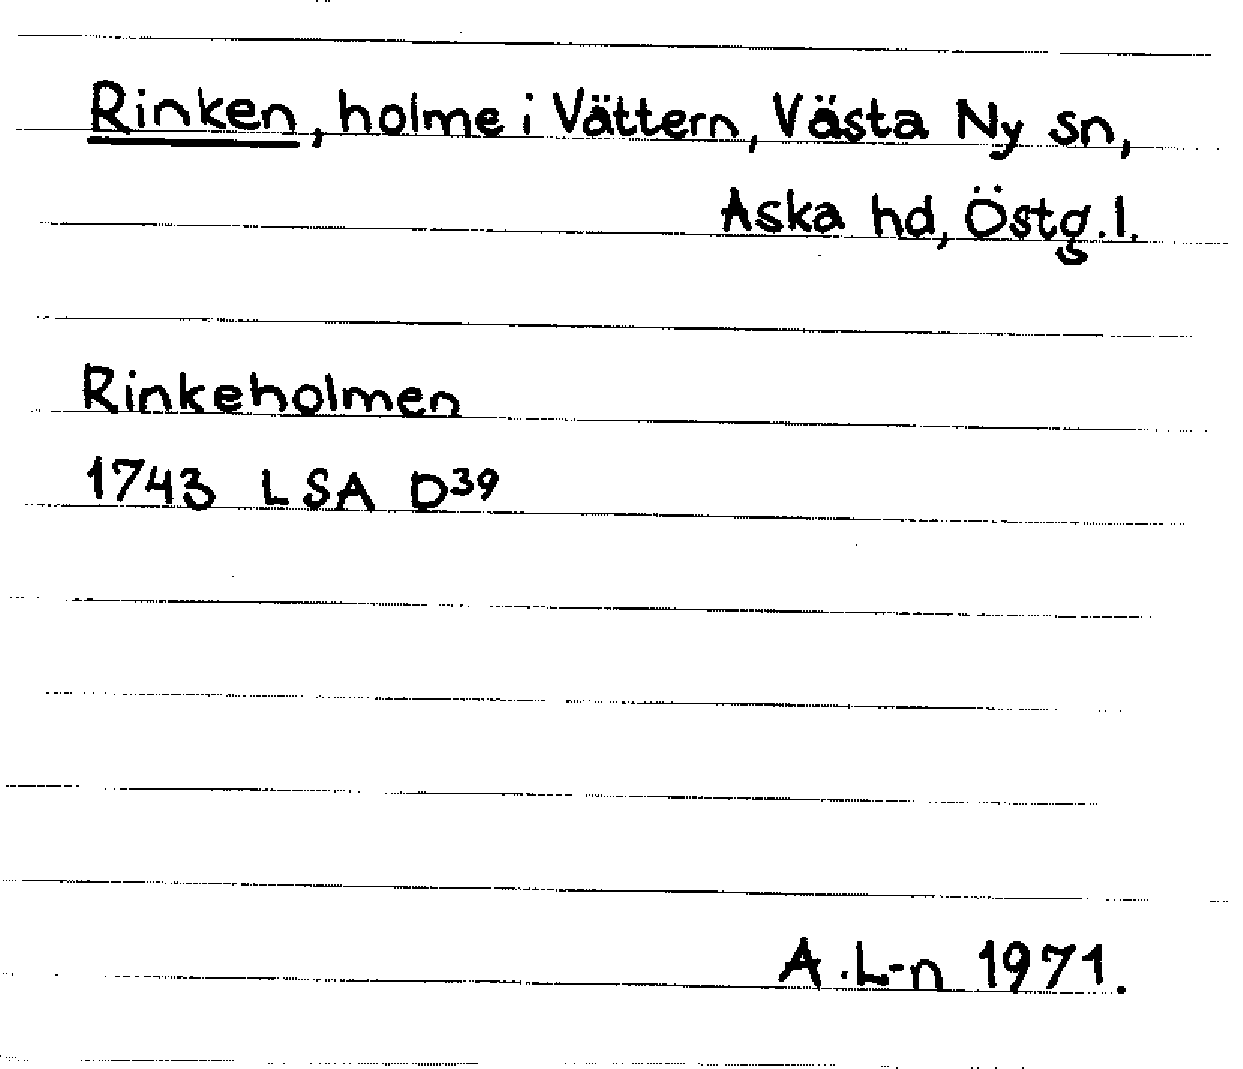 Rinken, holme i Vättern, Västa Ny sn,
Aska hd, Östg.l.
Rinkeholmen
1743 LSA D39
A.L-n 1971.